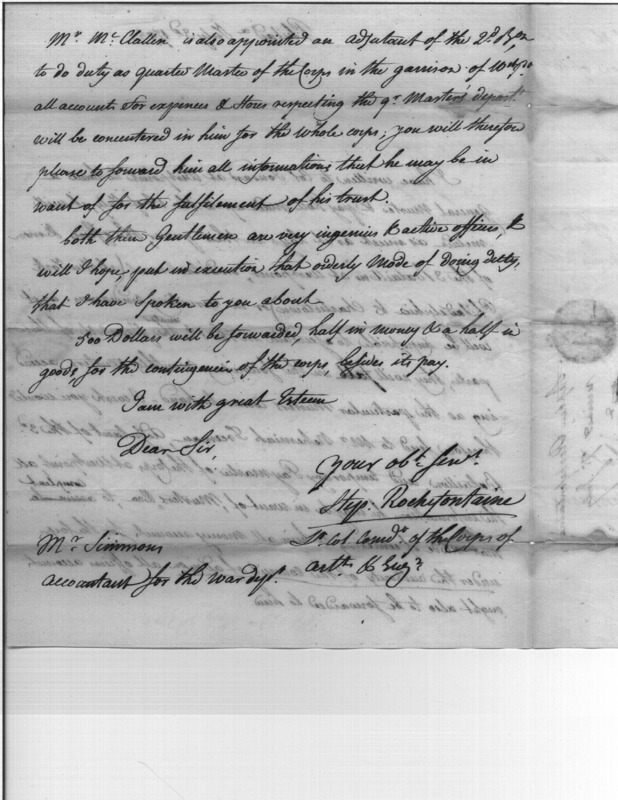 Mr. McClallen is also appointed an adjutant of the 2d. B on
to do duty as quarter Master of the Corps in the garrison of West pt.
all accounts for expences & stores respecting the qr. Master's departt.
will be concentered in him for the whole corps; you will therefore
please to forward him all informations that he may be in
want of for the fulfilement of his trust.
both these Gentlemen are very ingenius & active officers, &
will I hope, put in execution that orderly mode of doing duty,
that I have spoken to you about
500 Dollars will be forwarded, half in money & a half in
goods, for the contingencies of the corps, besides its pay.
I am with great Esteem
Dear Sir,
your obt. Servt.
Step. Rochefontaine
Lt. Col Comdt. of the Corps of
artts. & Engs.
Mr. Simmons
accountant for the war dept.